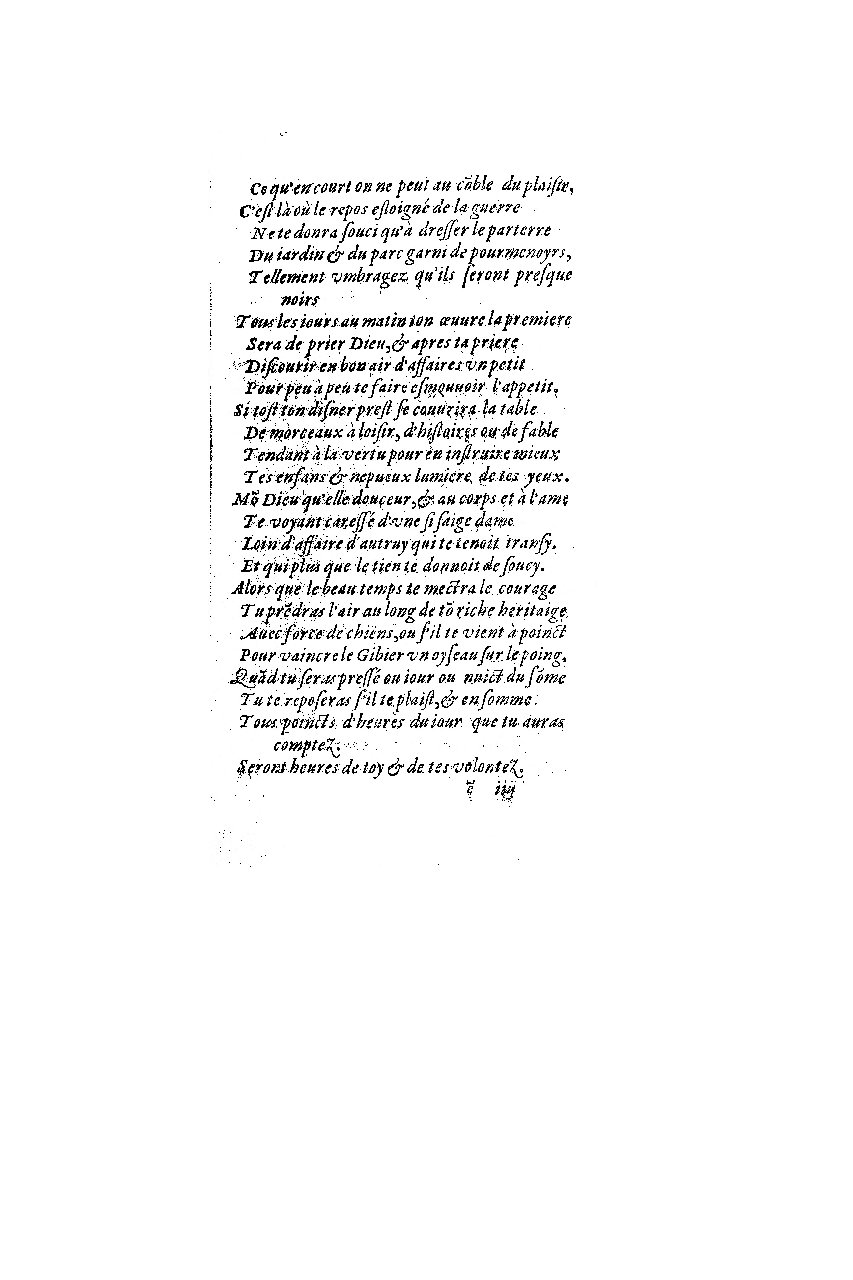 Ce qu'en court on ne peut au cõble du plaisir,
C'eſt là où le repos eſloigné de la guerre
Ne te donra ſouci qu'à dreſſer le parterre
Du iardin & du parc garni de pourmenoyrs,
Tellement vmbragez qu'ils ſeront preſque
noirs
Tous les iours au matin ton œuure la premiere
Sera de prier Dieu, & apres ta priere
Diſcourir en bon air d'affaires vn petit
Pour peu à peu te faire eſmouuoir l'appetit,
Si toſt ton diſner preſt ſe couurira la table
De morceaux à loiſir, d'hiſtoires ou de fable
Tendant à la vertu pour en inſtruire mieux
Tes enfans & nepueux lumiere de tes yeux.
Mõ Dieu qu'elle douceur, & au corps et à l'ame
Te voyant careſſé d'vne ſi ſaige dame
Loin d'affaire d'autruy qui te tenoit tranſy.
Et qui plus que le tien te donnoit de ſoucy.
Alors que le beau temps te mectra le courage
Tu prẽdras l'air au long de tõ riche heritaige
Auec force de chiens, ou ſ'il te vient à poinct
Pour vaincre le Gibier vn oyſeau ſur le poing.
Quãd tu ſeras preſſé ou iour ou nuict du ſõme
Tu te repoſeras ſ'il te plaiſt, & en ſomme
Tous poincts d'heures du iour que tu auras
comptez.
Seront heures de toy & de tes volontez.
ẽ iiij